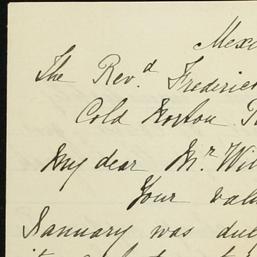 Mexi
The Rev.d Frederic
Cold Norton. P
My dear Mr. Wil
Your valu
January was due